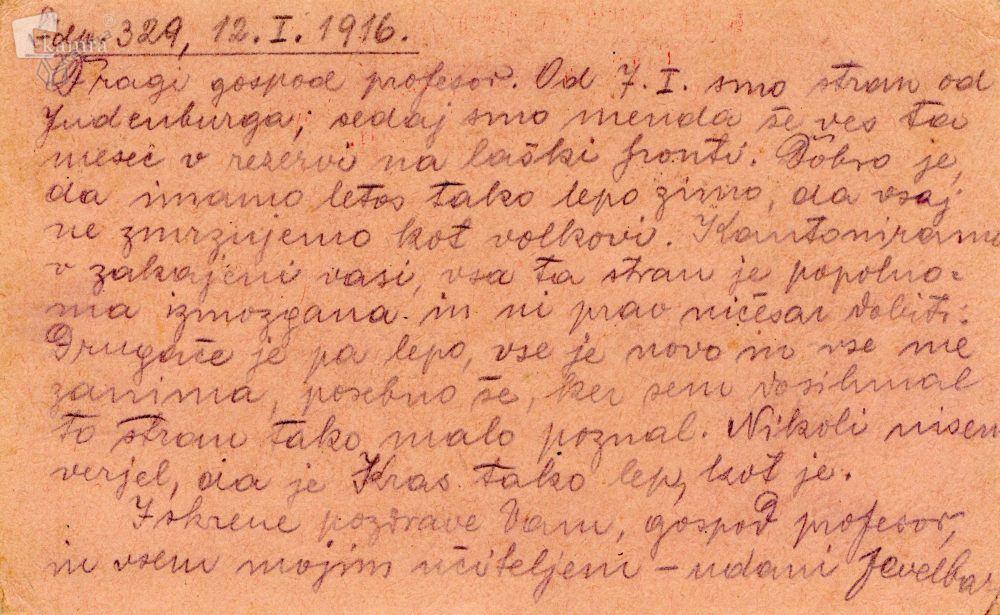 329, 12. I. 1916.
Kamra
Dragi gospod profesor. Od 7. I. smo stran od
Judenburga; sedaj smo menda še ves ta
mesec v rezervi na laški fronti. Dobro je,
da imamo letos tako lepo zimo, da vsaj
ne zmrzujemo kot volkovi. Kantoniramo
v zakajeni vasi, vsa ta stran je popolno-
ma izmozgana in ni prav ničesar dobiti.
Drugače je pa lepo, vse je novo in vse me
zanima, posebno še, ker sem dosihmal
to stran tako malo poznal. Nikoli nisem
verjel, da je Kras tako lep, kot je.
Iskrene pozdrave Vam, gospod profesor,
in vsem mojim učiteljem – udani